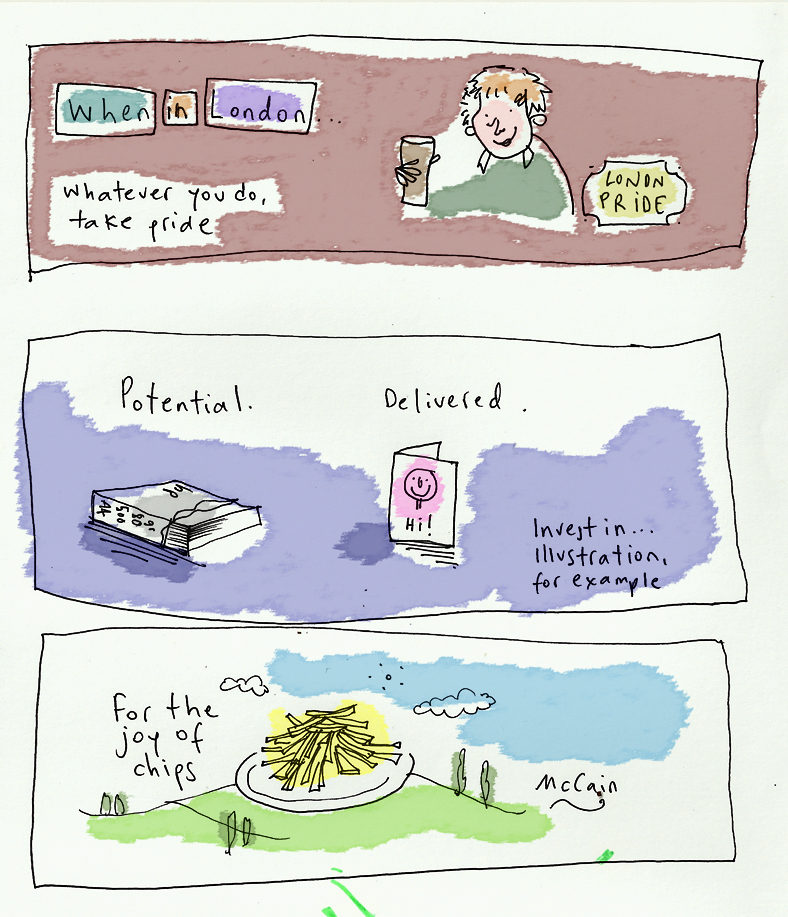 When in London...
whatever you do,
take pride
LONDN
PRIDE
Potential.
Delivered.
hp
A4
500
80
gs
Hi!
Invest in...
illustration,
for example
For the
joy of
chips
McCain